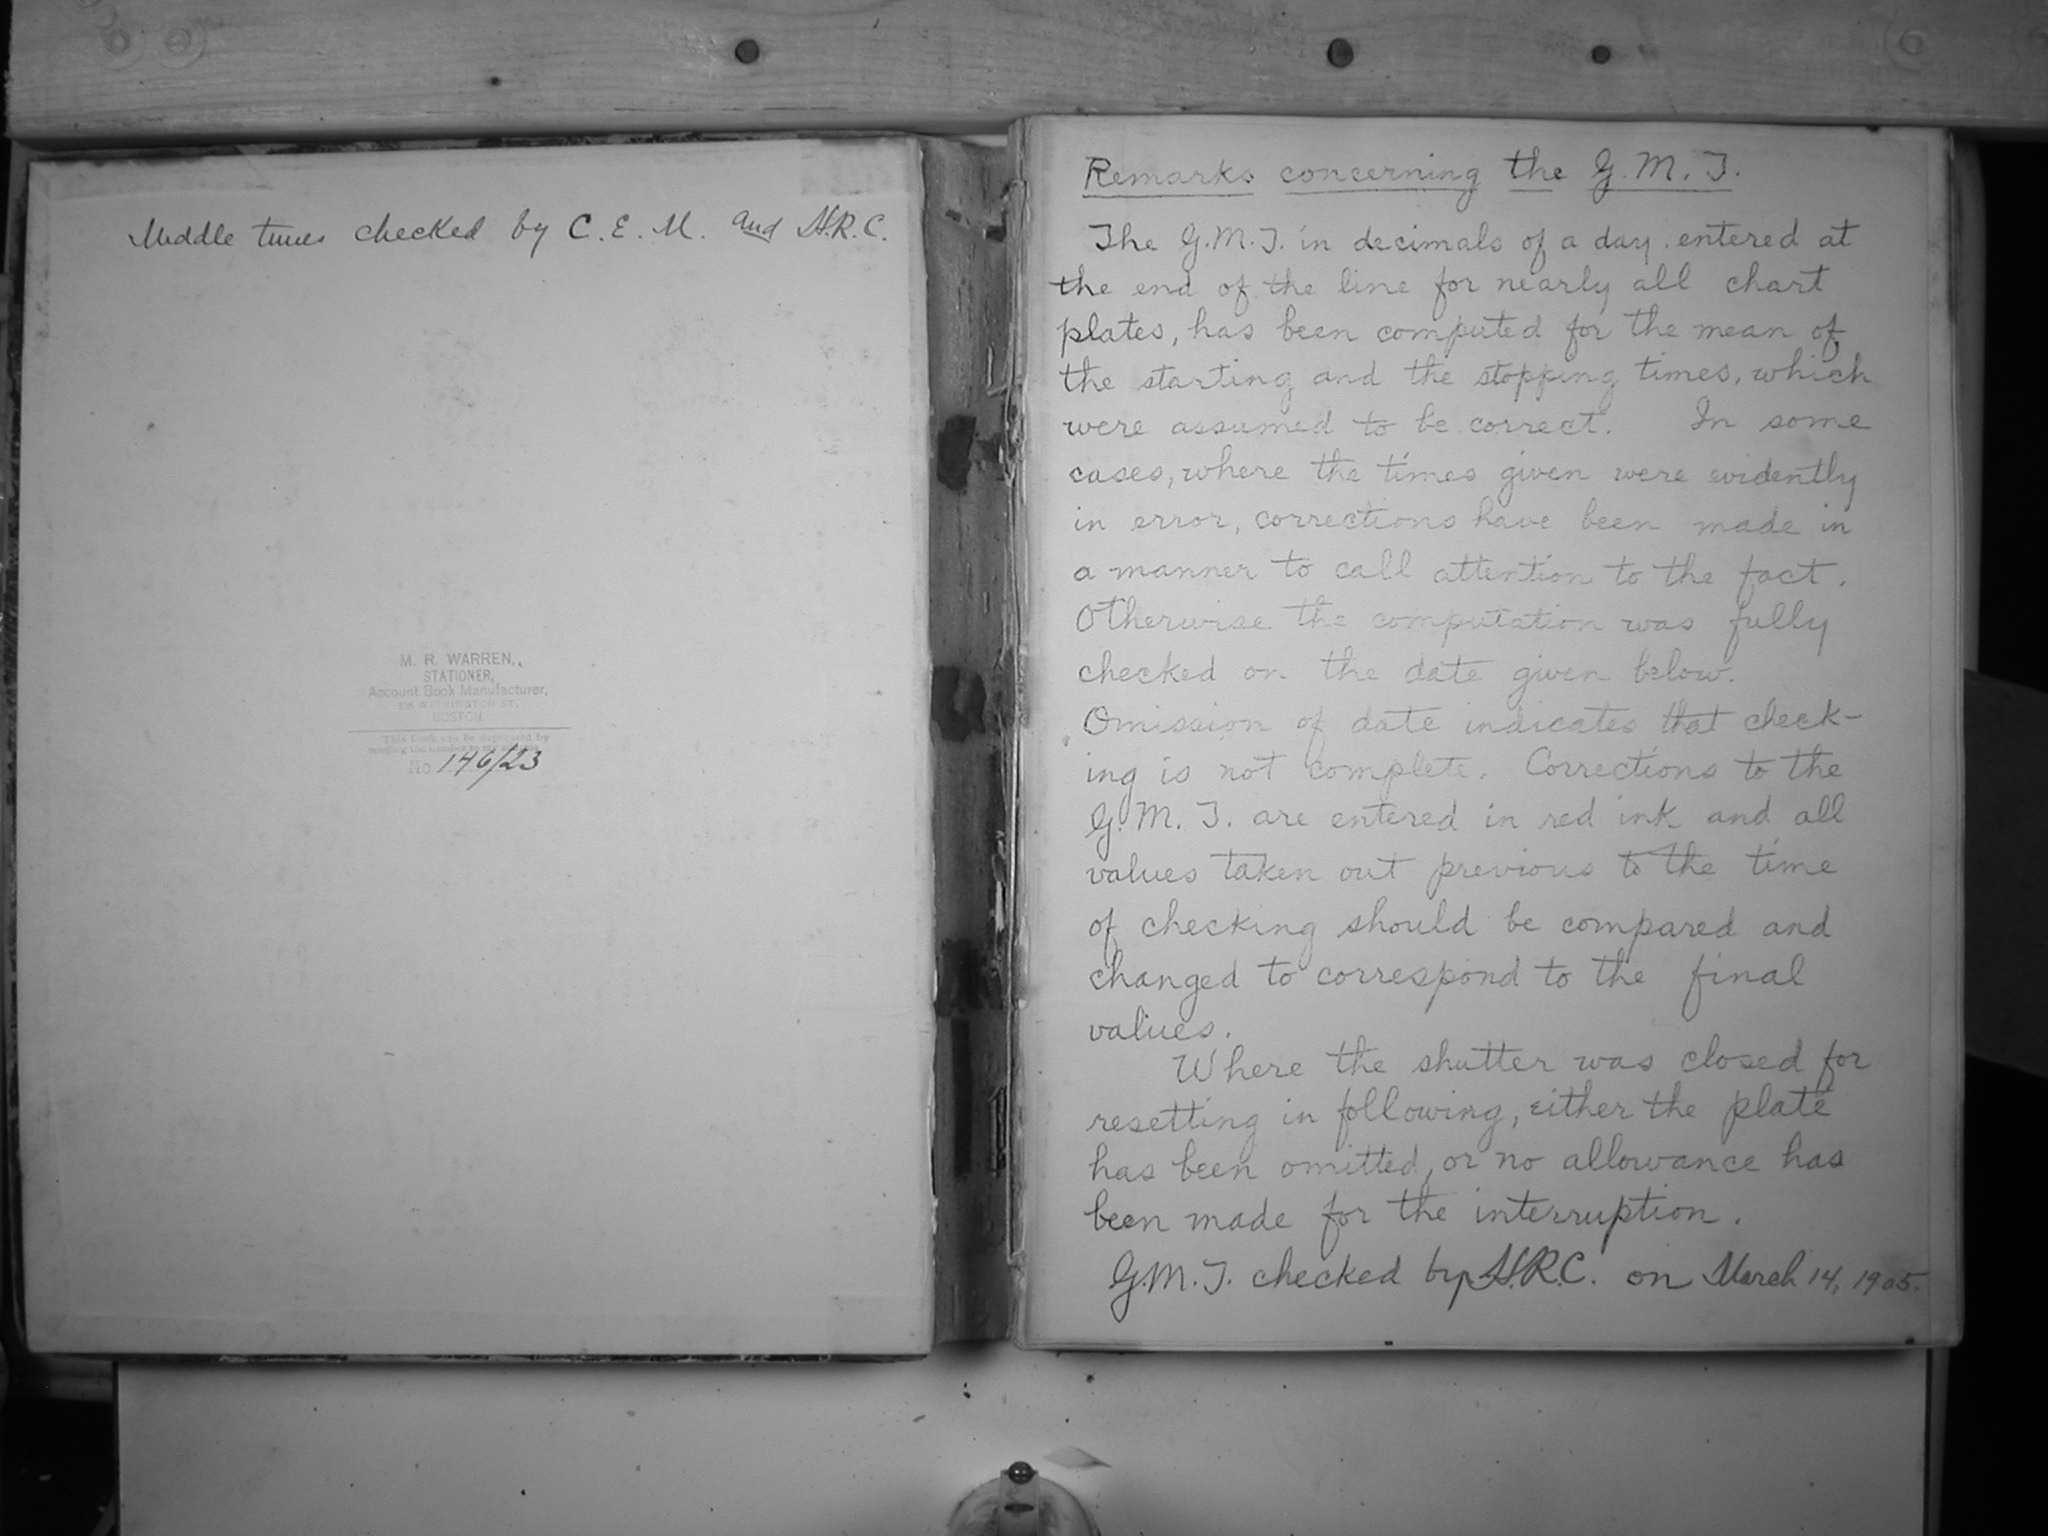 Middle times checked by C. E. M. and H.R.C.
M. R. WARREN,
STATIONER,
Account Book Manufacturer,
WASHINGTON ST.
BOSTON
This Book can be duplicated by
sending the number to
No 146/23
Remarks concerning the G. M. T.
The G.M.T. in decimals of a day, entered at
the end of the line for nearly all chart
plates, has been computed for the mean of
the starting and the stopping times, which
were assumed to be correct. In some
cases, where the times given were evidently
in error, corrections have been made in
a manner to call attention to the fact.
Otherwise the computation was fully
checked on the date given below.
Omission of date indicates that check-
ing is not complete. Corrections to the
G. M. T. are entered in red ink and all
values taken out previous to the time
of checking should be compared and
changed to correspond to the final
values.
Where the shutter was closed for
resetting in following, either the plate
has been omitted, or no allowance has
been made for the interruption.
G.M.T. checked by H.R.C. on March 14, 1905.